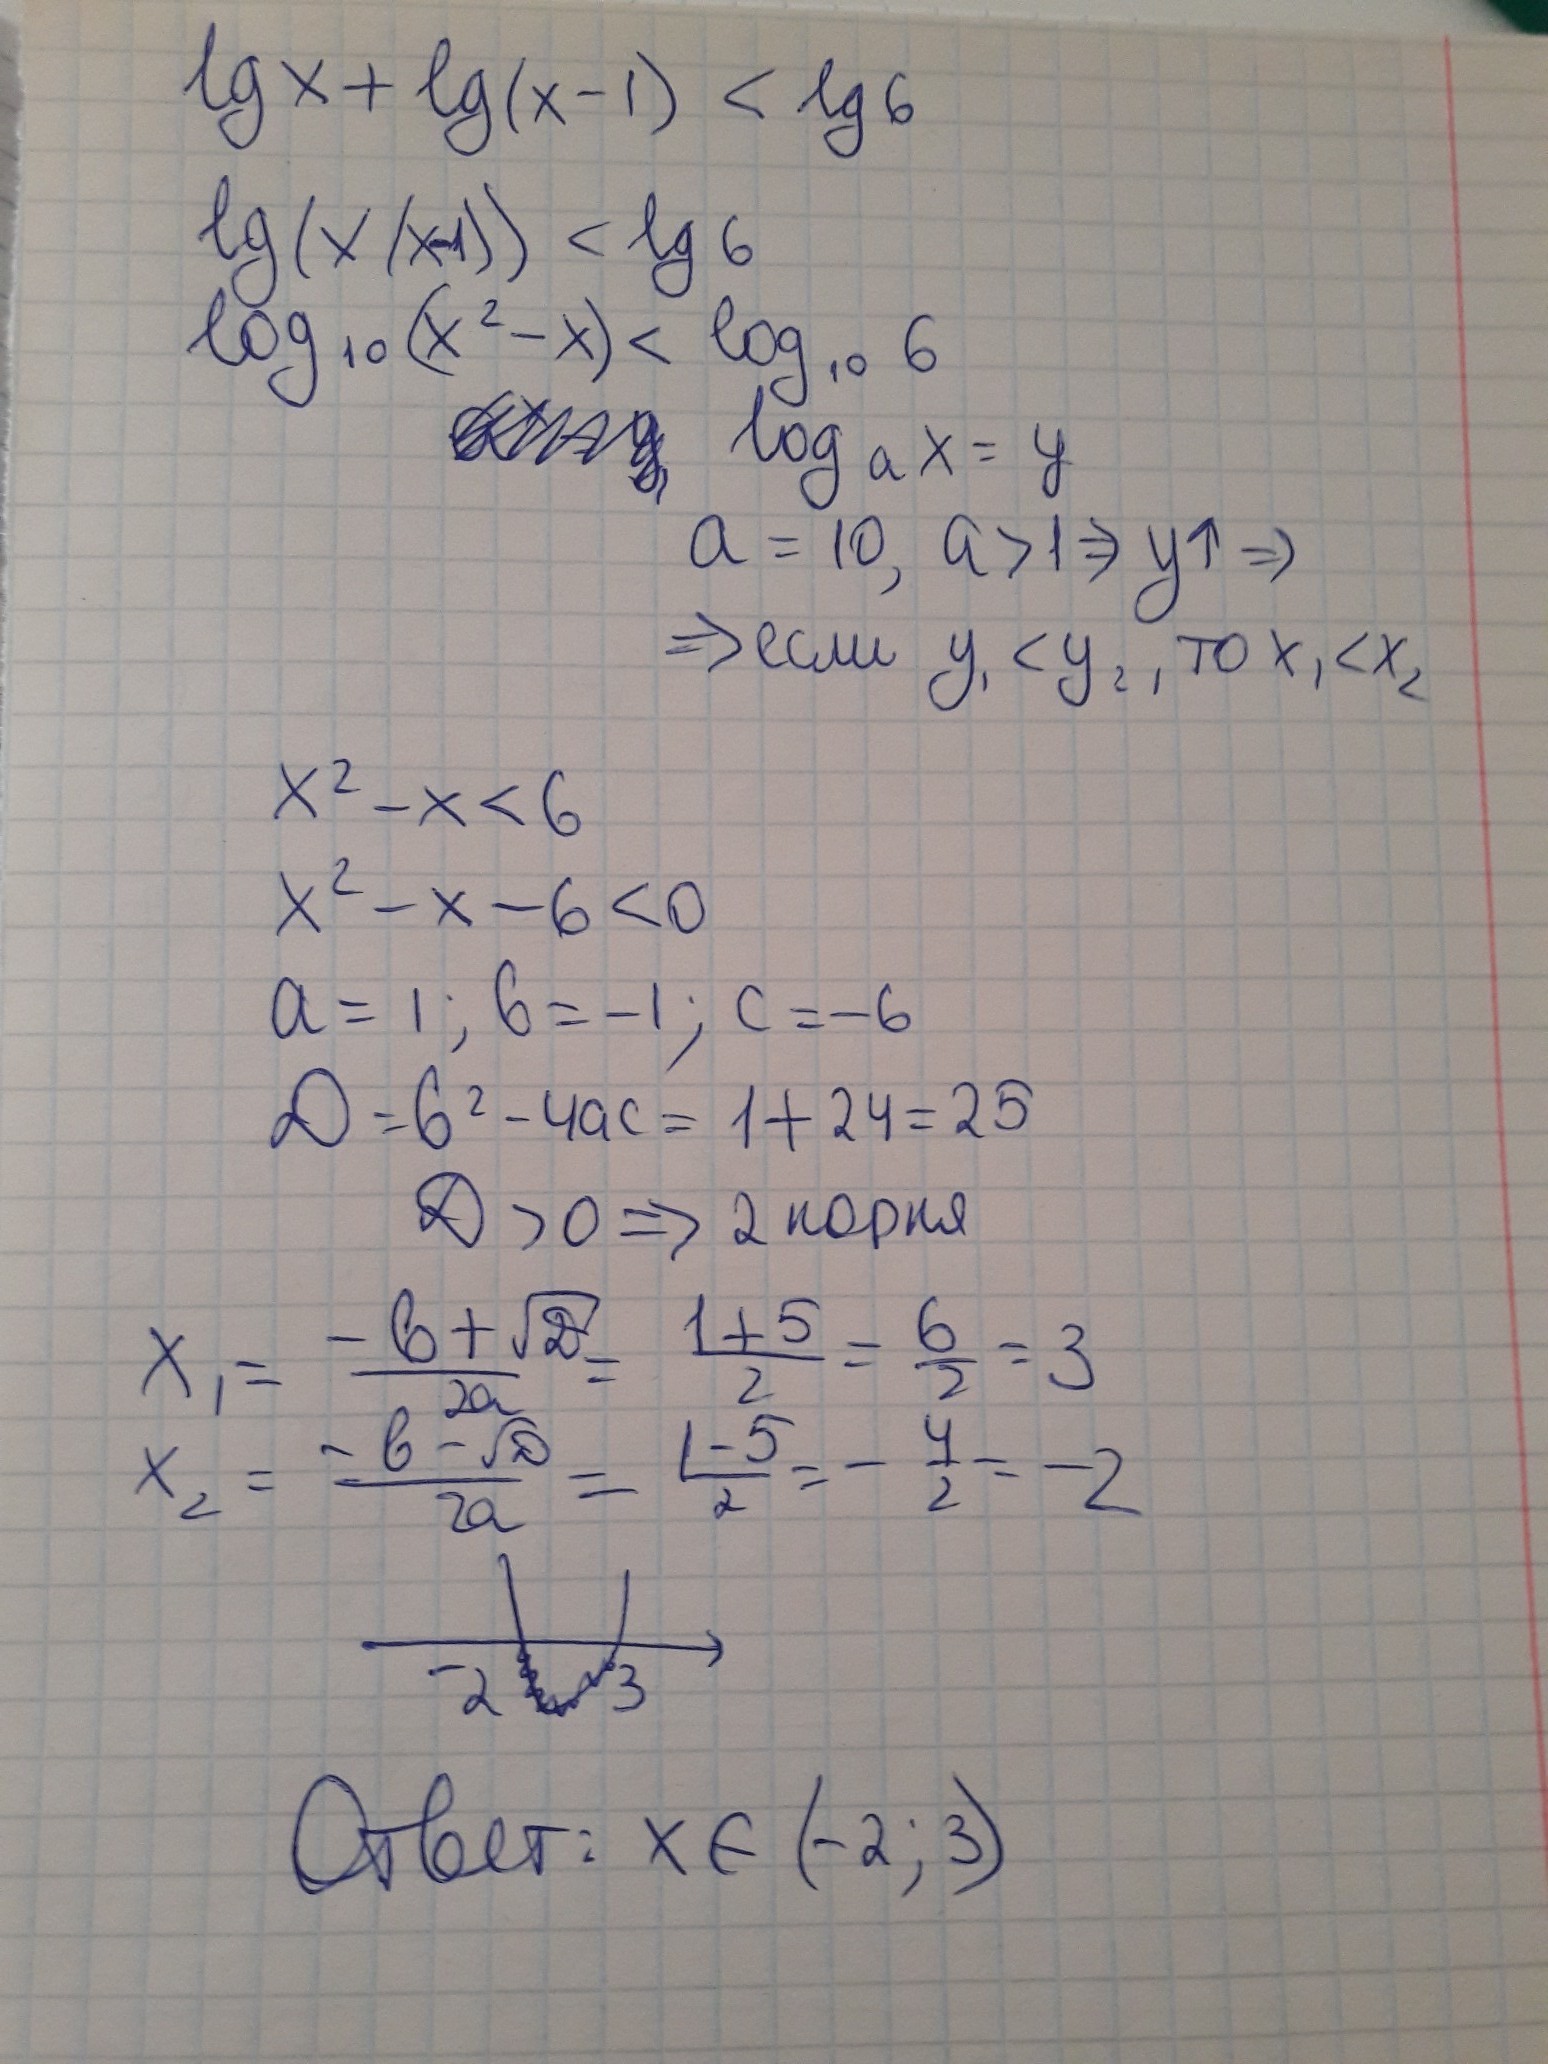 lg x + lg(x-1) < lg 6
lg(x(x-1)) < lg 6
log₁₀(x² - x) < log₁₀ 6
logₐ x = y
a = 10, a > 1 ⇒ y↑ ⇒
⇒ если y₁ < y₂, то x₁ < x₂
x² - x < 6
x² - x - 6 < 0
a = 1; b = -1; c = -6
D = b² - 4ac = 1 + 24 = 25
D > 0 ⇒ 2 корня
x₁ = (-b + √D)/2a = (1+5)/2 = 6/2 = 3
x₂ = (-b - √D)/2a = (1-5)/2 = -4/2 = -2
-2 3
Ответ: x ∈ (-2; 3)